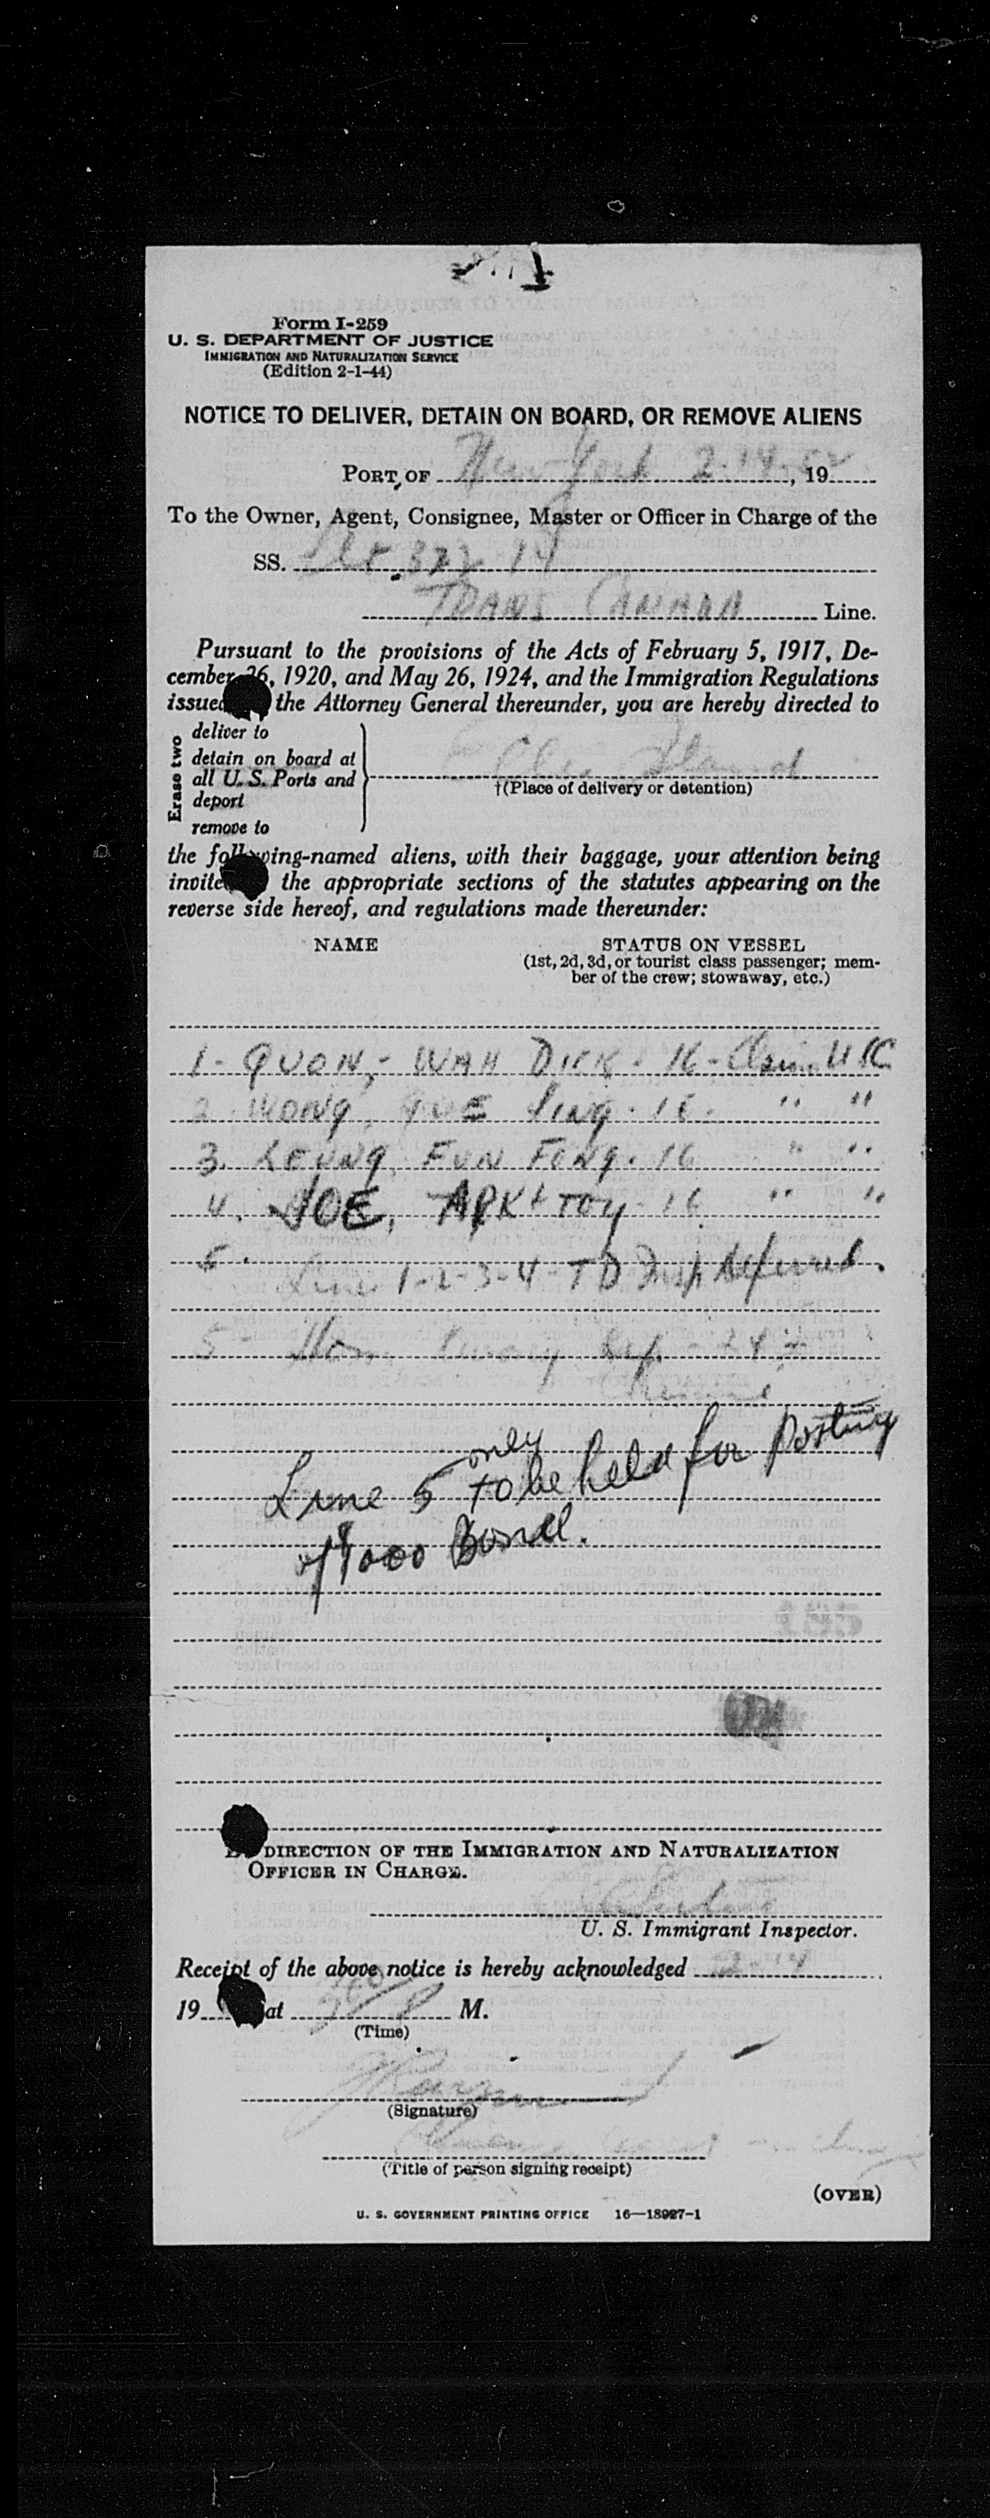 Form I-259
U. S. DEPARTMENT OF JUSTICE
IMMIGRATION AND NATURALIZATION SERVICE
(Edition 2-1-44)
NOTICE TO DELIVER, DETAIN ON BOARD, OR REMOVE ALIENS
PORT OF New York 2-14-52, 19
To the Owner, Agent, Consignee, Master or Officer in Charge of the
SS. 14
TRANS CANADA Line.
Pursuant to the provisions of the Acts of February 5, 1917, De-
cember 26, 1920, and May 26, 1924, and the Immigration Regulations
issued the Attorney General thereunder, you are hereby directed to
Erase two
deliver to
detain on board at
all U. S. Ports and
deport
remove to
Ellis Island
†(Place of delivery or detention)
the following-named aliens, with their baggage, your attention being
invite the appropriate sections of the statutes appearing on the
reverse side hereof, and regulations made thereunder:
NAME STATUS ON VESSEL
(1st, 2d, 3d, or tourist class passenger; mem-
ber of the crew; stowaway, etc.)
1- QUON, - WAH DICK - 16 - Claim USC
2. WONG, YUE Sing - 16 - " "
3. LEUNG, FUN FONG. 16 " "
4. JOE, TOY - 16 " "
5.
Line 1-2-3-4 - TD Insp deferred.
5-
Line 5 only to be held for posting
of $1000 Bond.
DIRECTION OF THE IMMIGRATION AND NATURALIZATION
OFFICER IN CHARGE.
U. S. Immigrant Inspector.
Receipt of the above notice is hereby acknowledged 2-14
19 at P M.
(Time)
(Signature)
(Title of person signing receipt)
(OVER)
U. S. GOVERNMENT PRINTING OFFICE 16—18927-1